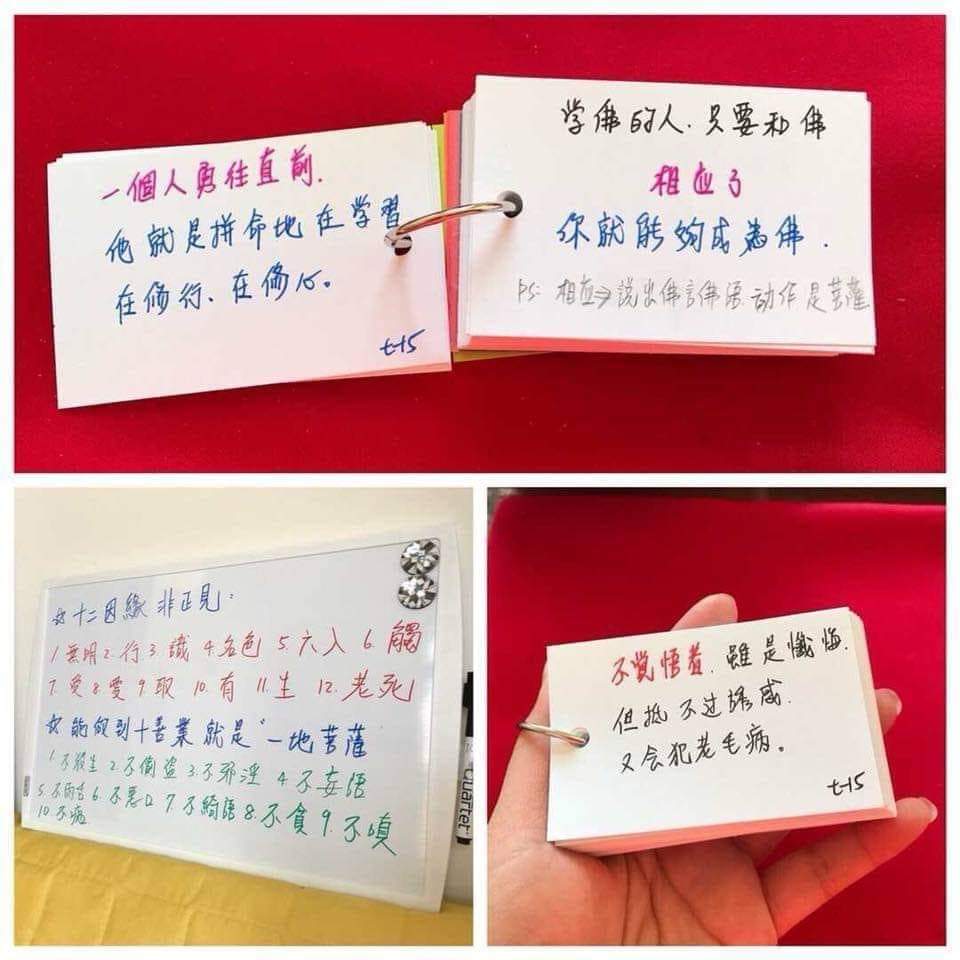 一個人勇往直前.
他就是拼命地在学習
在修行、在修心。
t-15
学佛的人.只要和佛
相应了
你就能夠成為佛.
PS: 相应⇒説出佛言佛语.动作是菩薩
☆十二因緣 非正見:
1.無明 2.行 3.識 4.名色 5.六入 6.觸
7.受 8.愛 9.取 10.有 11.生 12.老死
☆能做到十善業 就是"一地菩薩
1.不殺生 2.不偷盜 3.不邪淫 4.不妄語
5.不両舌 6.不惡口 7.不綺語 8.不貪 9.不嗔
10.不痴
Quartet
不觉悟者.雖是懺悔.
但抵不过誘惑.
又会犯老毛病。
t-15